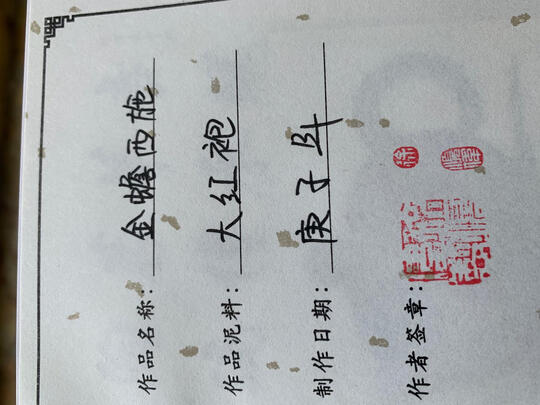 作品名称：金蟾西施
作品泥料：大红袍
制作日期：庚子
作者签章：